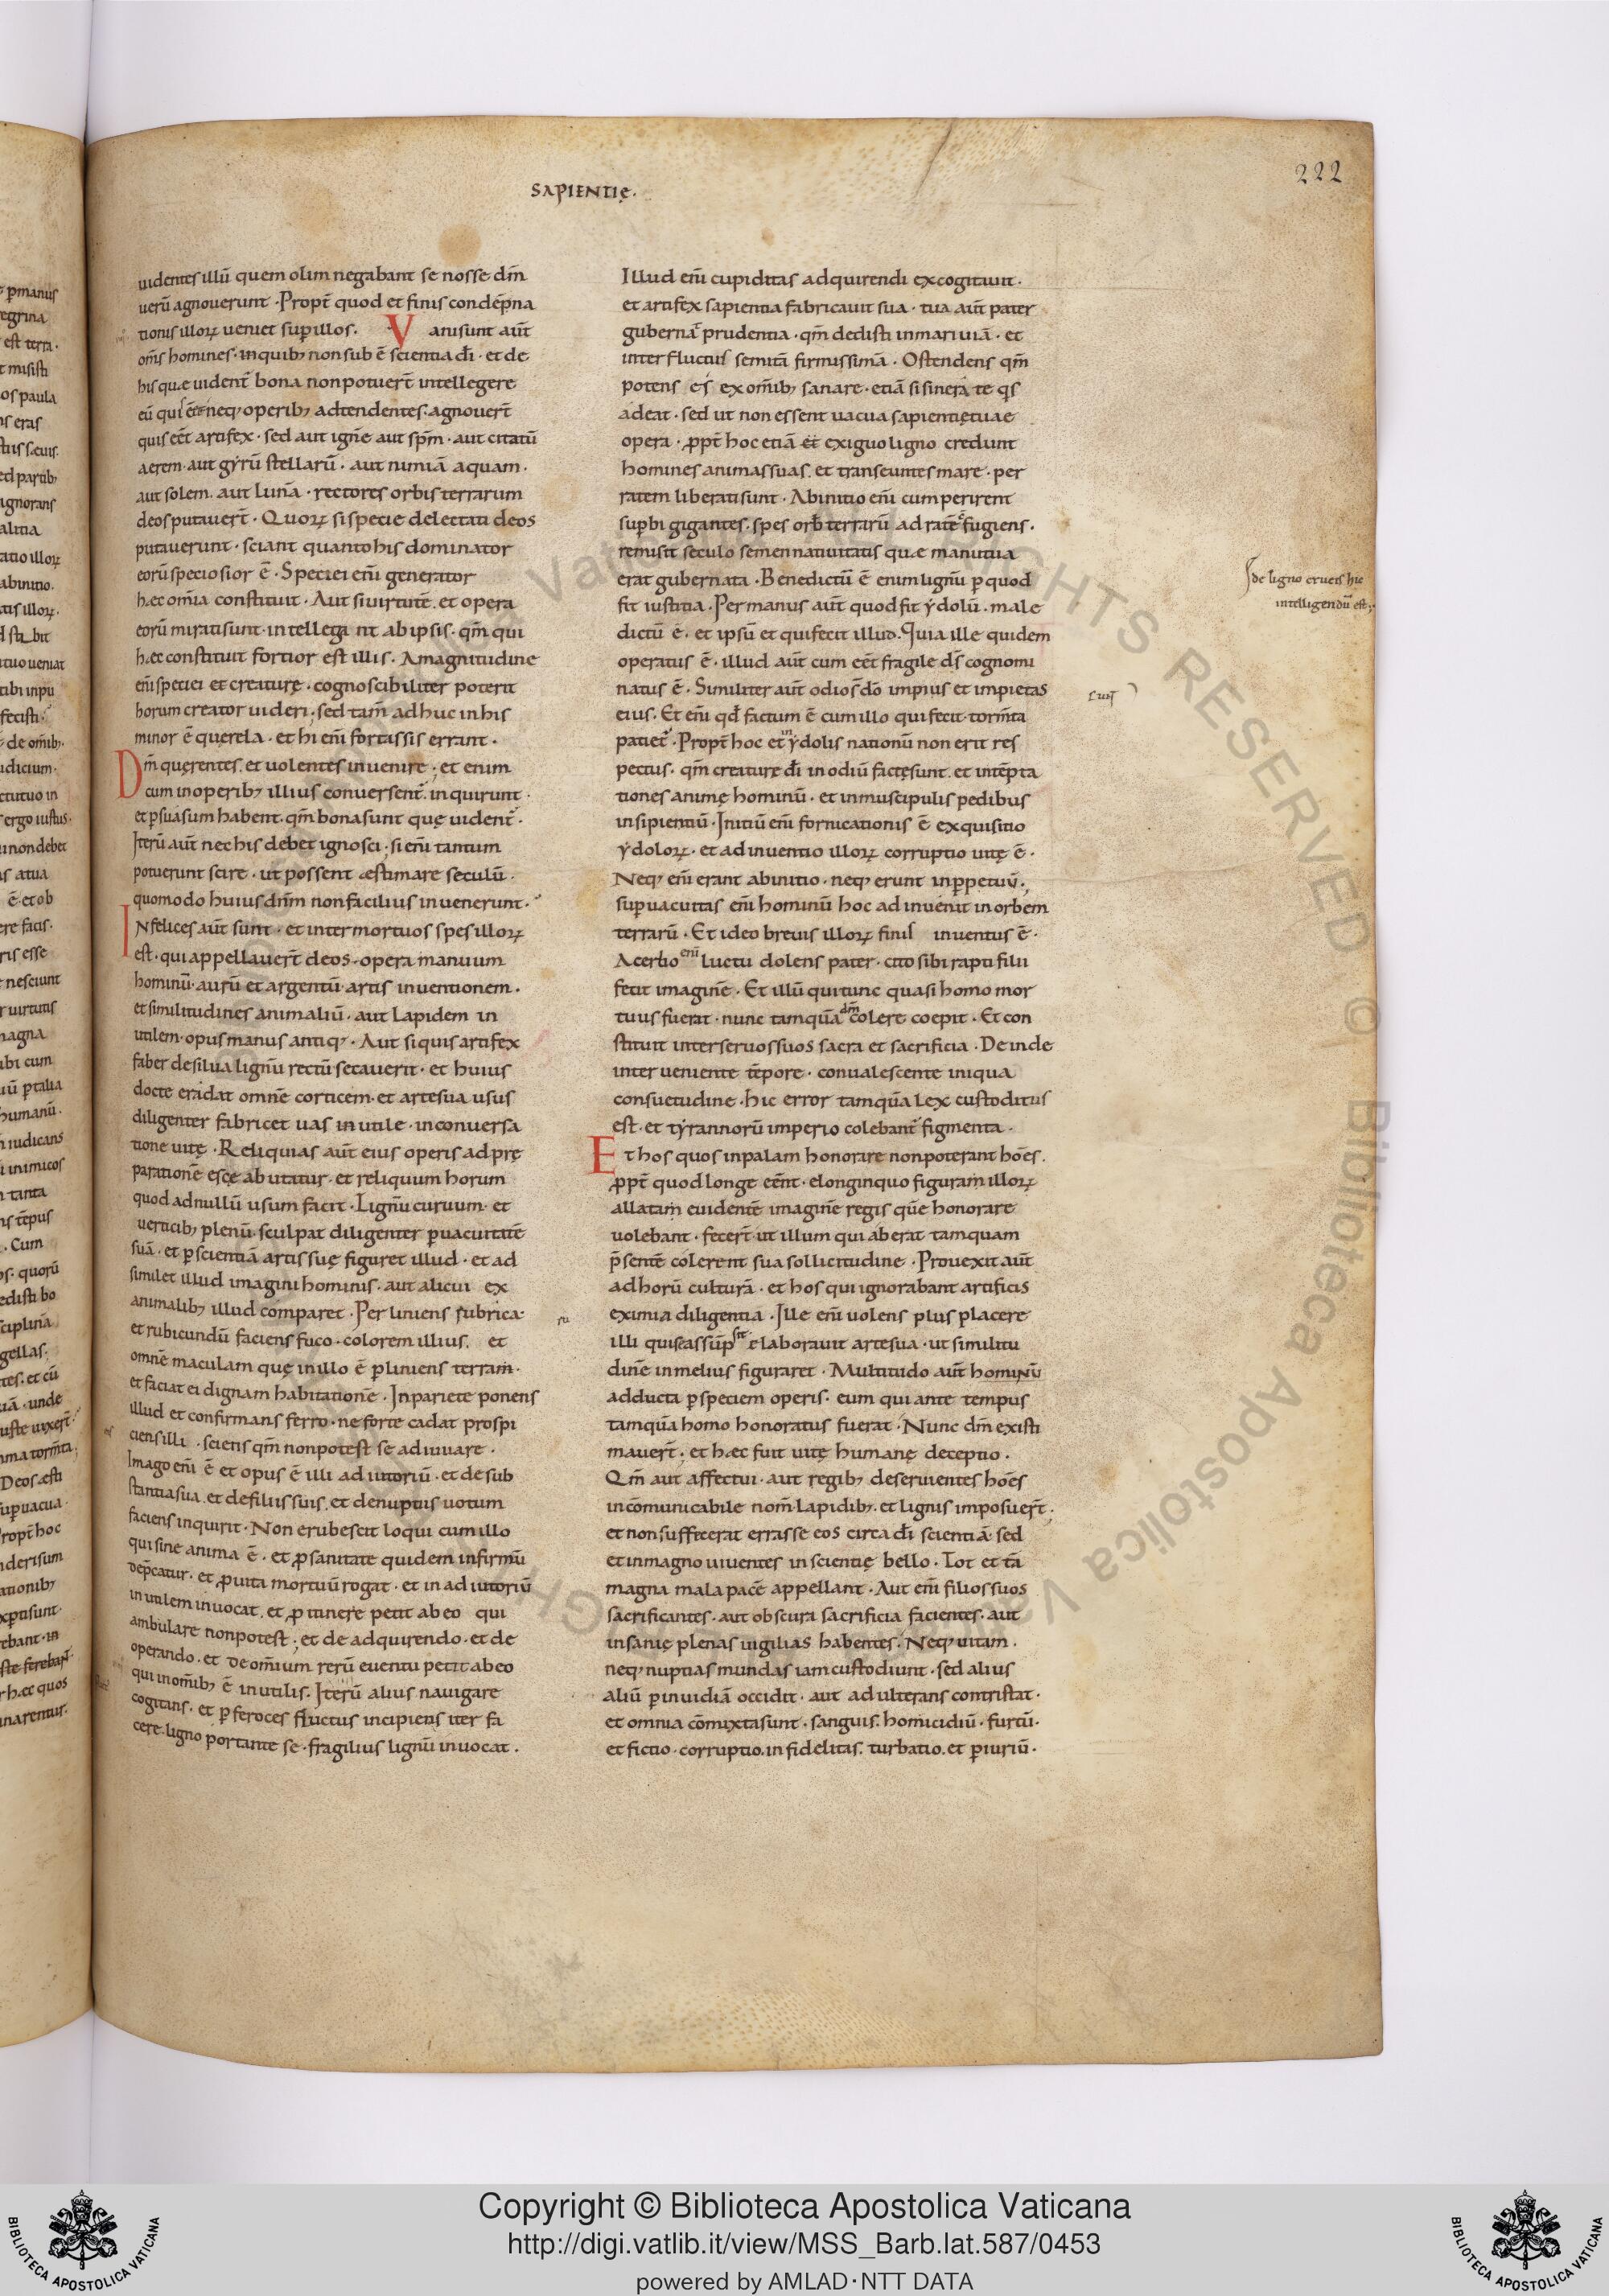 SAPIENTIę.
222
uidentes illū quem olim negabant se nosse dm̄
uerū agnouerunt. Propt̄ quod et finis condēpna
tionis illoꝝ ueniet sup illos. Vani sunt aūt
om̄s homines. in quib; non sub ē scientia dī. et de
his quae uident̄ bona non potuer̄t intellegere
eū qui ēēt neq; operib; adtendentes. agnouer̄t
quis eēt artifex. sed aut igne aut spm̄. aut citatū
aerem. aut gyrū stellarū. aut nimiā aquam.
aut solem. aut lunā. rectores orbis terrarum
deos putauer̄t. Quoꝝ si specie delectati deos
putauerunt. sciant quanto his dominator
eorū speciosior ē. Speciei eni generator
haec om̄ia constituit. Aut si uirtutē. et opera
eorū mirati sunt. intellega nt ab ipsis. qm̄ qui
haec constituit fortior est illis. A magnitudine
eni speciei et creaturę. cognoscibiliter poterit
horum creator uideri; sed tam̄ adhuc in his
minor ē querela. et hi eni fortassis errant.
Dm̄ querentes. et uolentes inuenire; et enim
cum in operib; illius conuersent̄. inquirunt.
et p̱suasum habent. qm̄ bona sunt quę uident̄.
Iterū aūt nec his debet ignosci; si eni tantum
potuerunt scire. ut possent aestimare seculū.
quomodo huius dnm̄ non facilius inuenerunt.
INfelices aūt sunt. et inter mortuos spes illoꝝ
est. qui appellauer̄t deos. opera manuum
hominū. aurū et argentū. artis inuentionem.
et similitudines animaliū. aut lapidem in
utilem. opus manus antiq;. Aut si quis artifex
faber de silua lignū rectū secauerit. et huius
docte eradat omnē corticem. et arte sua usus
diligenter fabricet uas inutile. in conuersa
tione uitę. Reliquias aūt eius operis ad prę
parationē escę abutatur. et reliquum horum
quod ad nullū usum facit. Lignū curuum. et
uerticib; plenū. sculpat diligenter p̱ uacuitatē
suā. et p̱ scientiā artis suę figuret illud. et ad
similet illud imagini hominis. aut alicui ex
animalib; illud comparet. Perliniens rubrica
et rubicundū faciens fuco. colorem illius. et
omnē maculam quę in illo ē p̱liniens terram.
et faciat ei dignam habitationē. In pariete ponens
illud et confirmans ferro. ne forte cadat prospi
ciens illi. sciens qm̄ non potest se adiuuare.
Imago eni ē et opus ē illi adiutoriū. et de sub
stantia sua. et de filiis suis. et de nuptiis uotum
faciens inquirit. Non erubescit loqui cum illo
qui sine anima ē. et ꝓ sanitate quidem infirmū
dep̄catur. et ꝓ uita mortuū rogat. et in adiutoriū
inutilem inuocat. et ꝓ itinere petit ab eo qui
ambulare non potest; et de adquirendo. et de
operando. et de om̄ium rerū euentu petit ab eo
qui in om̄ib; ē inutilis. Iterū alius nauigare
cogitans. et p̱ feroces fluctus incipiens iter fa
cere. ligno portante se. fragilius lignū inuocat.
Illud eni cupiditas adquirendi excogitauit.
et artifex sapientia fabricauit sua. tua aūt pater
gubernat̄ prudentia. qm̄ dedisti in mari uiā. et
inter fluctus semitā firmissimā. Ostendens qm̄
potens es ex om̄ib; sanare. etiā si sine rate qs
adeat. sed ut non essent uacua sapientię tuae
opera. ꝓpt̄ hoc etiā et exiguo ligno credunt
homines animas suas. et transeuntes mare. per
ratem liberati sunt. Ab initio eni cum perirent
sup̱bi gigantes. spes orb̄ terrarū ad ratē cfugiens.
remisit seculo semen natiuitatis quae manu tua
erat gubernata. Benedictū ē enim lignū p̱ quod
fit iustitia. Per manus aūt quod fit ydolū. male
dictū ē. et ipsū et qui fecit illud. Quia ille quidem
operatus ē. illud aūt cum eēt fragile ds̄ cognomi
natus ē. Similiter aūt odio s̄ dō impius et impietas
eius. Et eni qd̄ factum ē cum illo qui fecit tormta
patiet̄. Propt̄ hoc et in ydolis nationū non erit res
pectus. qm̄ creaturę dī in odiū factę sunt. et intēpta
tiones animę hominū. et in muscipulis pedibus
insipientiū. Initiū eni fornicationis ē exquisitio
ydoloꝝ. et adinuentio illoꝝ corruptio uitę ē.
Neq; eni erant ab initio. neq; erunt in p̱petuū.
sup̱uacuitas eni hominū hoc adinuenit in orbem
terrarū. Et ideo breuis illoꝝ finis inuentus ē.
Acerbo eni luctu dolens pater. cito sibi rapti filii
fecit imaginē. Et illū qui tunc quasi homo mor
tuus fuerat. nunc tamquā dm̄ colere coepit. Et con
stituit inter seruos suos sacra et sacrificia. Deinde
interueniente tēpore. conualescente iniqua
consuetudine. hic error tamquā lex custoditus
est. et tyrannorū imperio colebant̄ figmenta.
Et hos quos in palam honorare non poterant hōēs.
ꝓpt̄ quod longe eēnt. e longinquo figuram illoꝝ
allatam euidentē imaginē regis quē honorare
uolebant. fecer̄t. ut illum qui aberat tamquam
p̄sentē colerent sua sollicitudine. Prouexit aūt
ad horū culturā. et hos qui ignorabant artificis
eximia diligentia. Ille eni uolens plus placere
illi qui se assūpsit elaborauit arte sua. ut similitu
dinē in melius figuraret. Multitudo aūt hominū
adducta p̱ speciem operis. eum qui ante tempus
tamquā homo honoratus fuerat. Nunc dm̄ existi
mauer̄t; et haec fuit uitę humanę deceptio.
Qm̄ aut affectui. aut regib; deseruientes hōēs
incōmunicabile nom̄. lapidib;. et lignis imposuer̄t;
et non suffecerat errasse eos circa dī scientiā. sed
et in magno uiuentes inscientię bello. Tot et tā
magna mala pacē appellant. Aut eni filios suos
sacrificantes. aut obscura sacrificia facientes. aut
insanię plenas uigilias habentes. Neq; uitam.
neq; nuptias mundas iam custodiunt. sed alius
aliū p̱ inuidiā occidit. aut adulterans contristat.
et omnia cōmixta sunt. sanguis. homicidiū. furtū.
et fictio. corruptio. infidelitas. turbatio. et p̱iuriū.
de ligno crucis hic
intelligendū est;
Copyright © Biblioteca Apostolica Vaticana
http://digi.vatlib.it/view/MSS_Barb.lat.587/0453
powered by AMLAD·NTT DATA
BIBLIOTECA APOSTOLICA VATICANA
BIBLIOTECA APOSTOLICA VATICANA